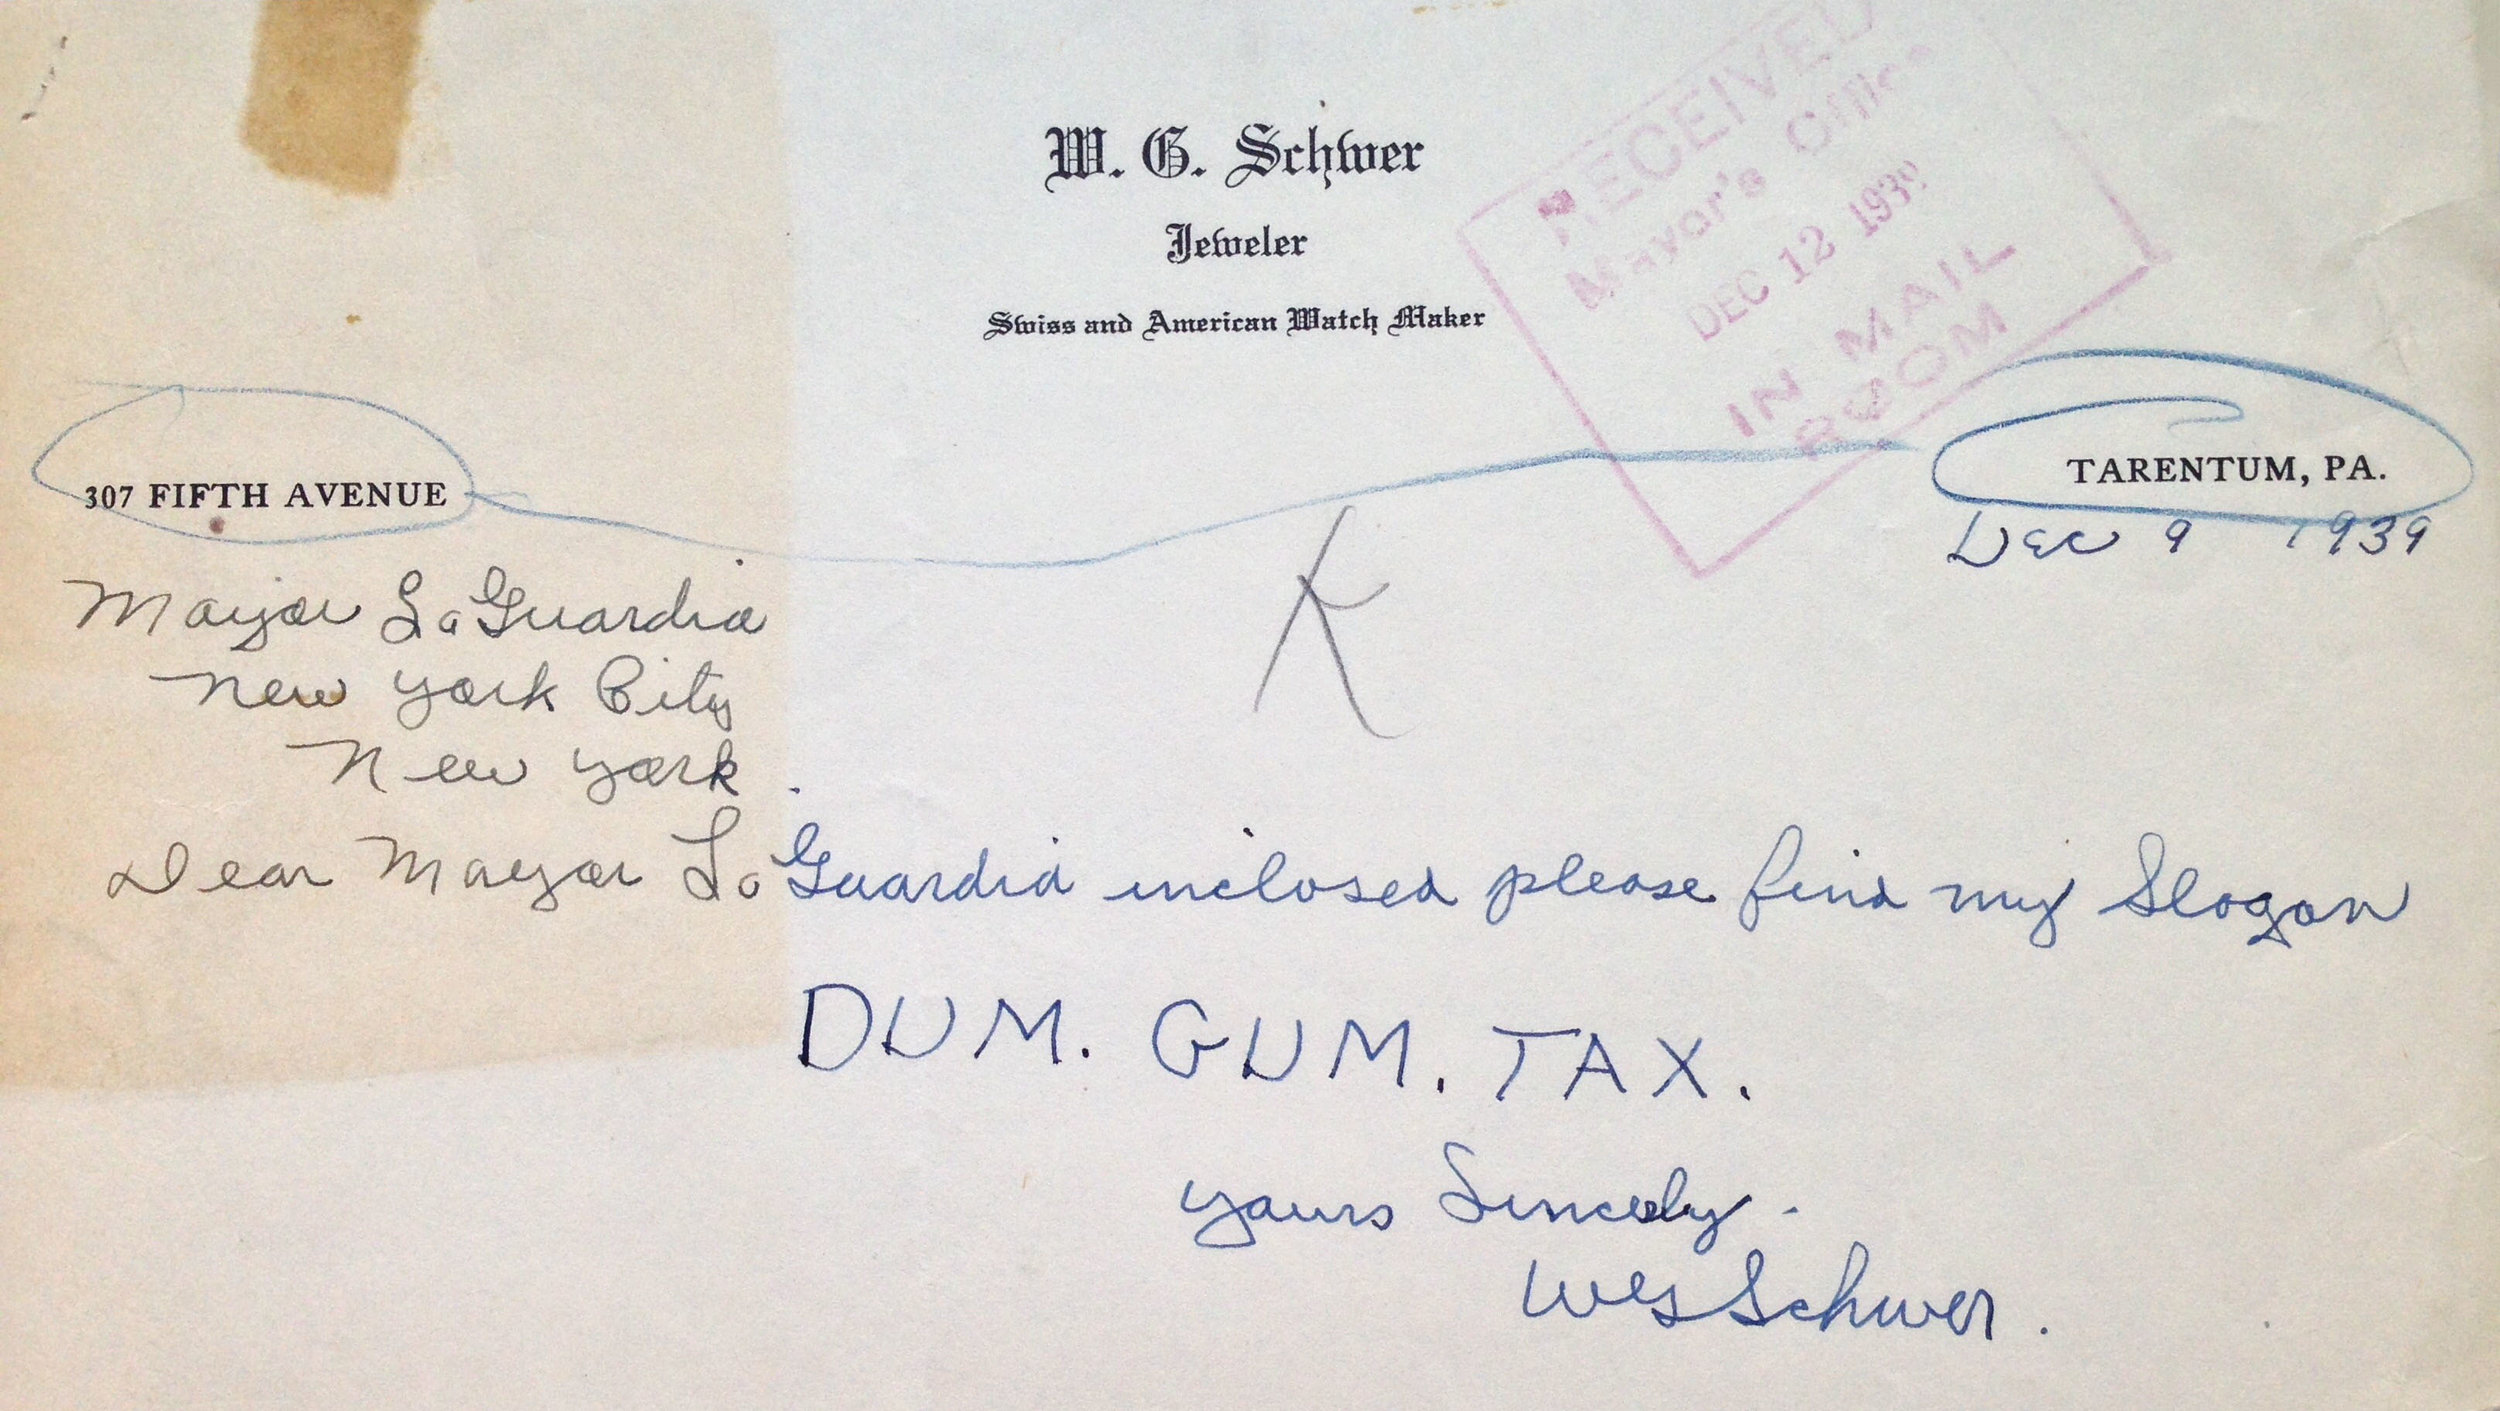 W. G. Schwer
Jeweler
Swiss and American Watch Maker
RECEIVED
Mayor's Office
DEC 12 1939
IN MAIL
ROOM
307 FIFTH AVENUE
TARENTUM, PA.
Dec 9 1939
Mayor LaGuardia
New York City
New York.
K
Dear Mayor LaGuardia inclosed please find my Slogan
DUM. GUM. TAX.
yours Sincerly.
Wes Schwer.